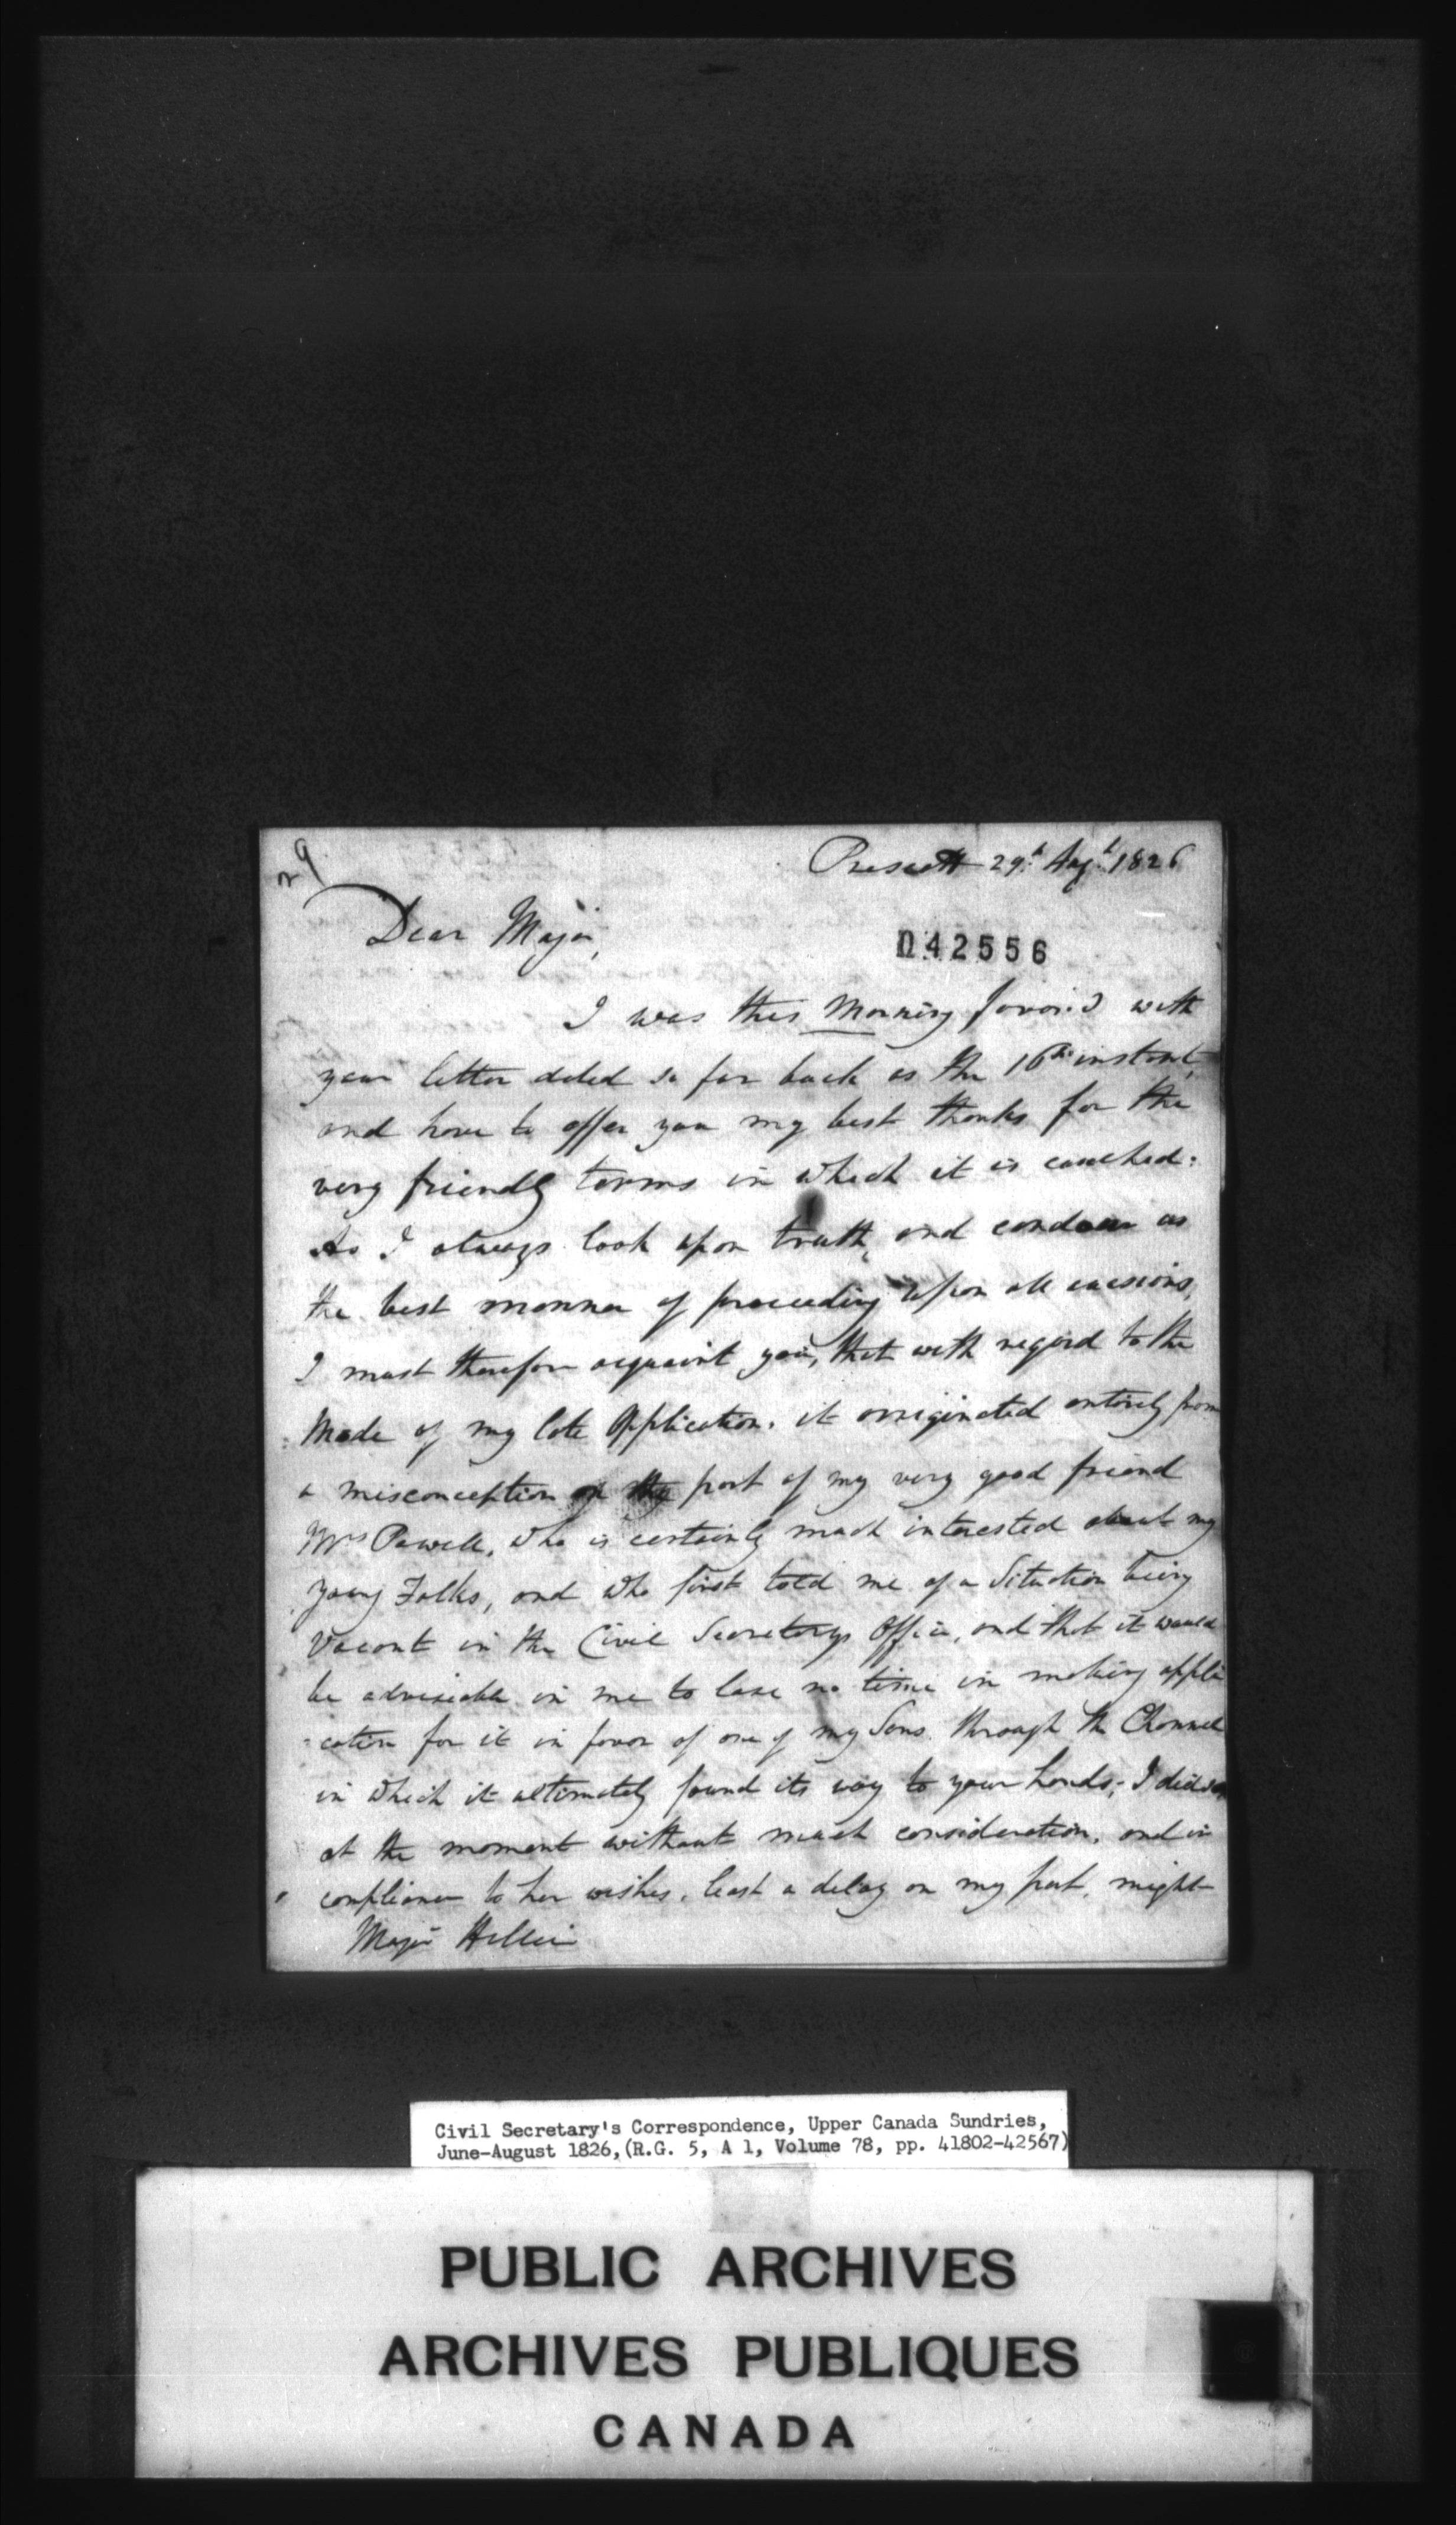 29
Prescott 29th Augt 1826
Dear Major,
042556
I was this Morning favor'd with
your letter dated so far back as the 16th instant,
and have to offer you my best thanks for the
very friendly terms in which it is couched:
As I always look upon truth, and candour as
the best manner of proceeding upon all occasions,
I must therefore acquaint you, that with regard to the
Mode of my late Application, it originated entirely from
a misconception on the part of my very good friend
Mrs Powell, who is certainly much interested about my
young Folks, and who first told me of a Situation being
Vacant in the Civil Secretarys Office, and that it would
be adviseable in me to lose no time in making appli
-cation for it in favor of one of my Sons through the Channel
in which it ultimately found its way to your hands; I did so
at the moment without much consideration, and in
compliance to her wishes, least a delay on my part, might
Major Hillier
Civil Secretary's Correspondence, Upper Canada Sundries,
June-August 1826, (R.G. 5, A 1, Volume 78, pp. 41802-42567)
PUBLIC ARCHIVES
ARCHIVES PUBLIQUES
CANADA